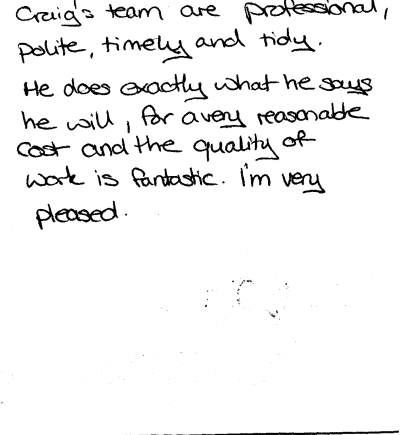 Craig's team are professional,
polite, timely and tidy.
He does exactly what he says
he will, for a very reasonable
cost and the quality of
work is fantastic. I'm very
pleased.